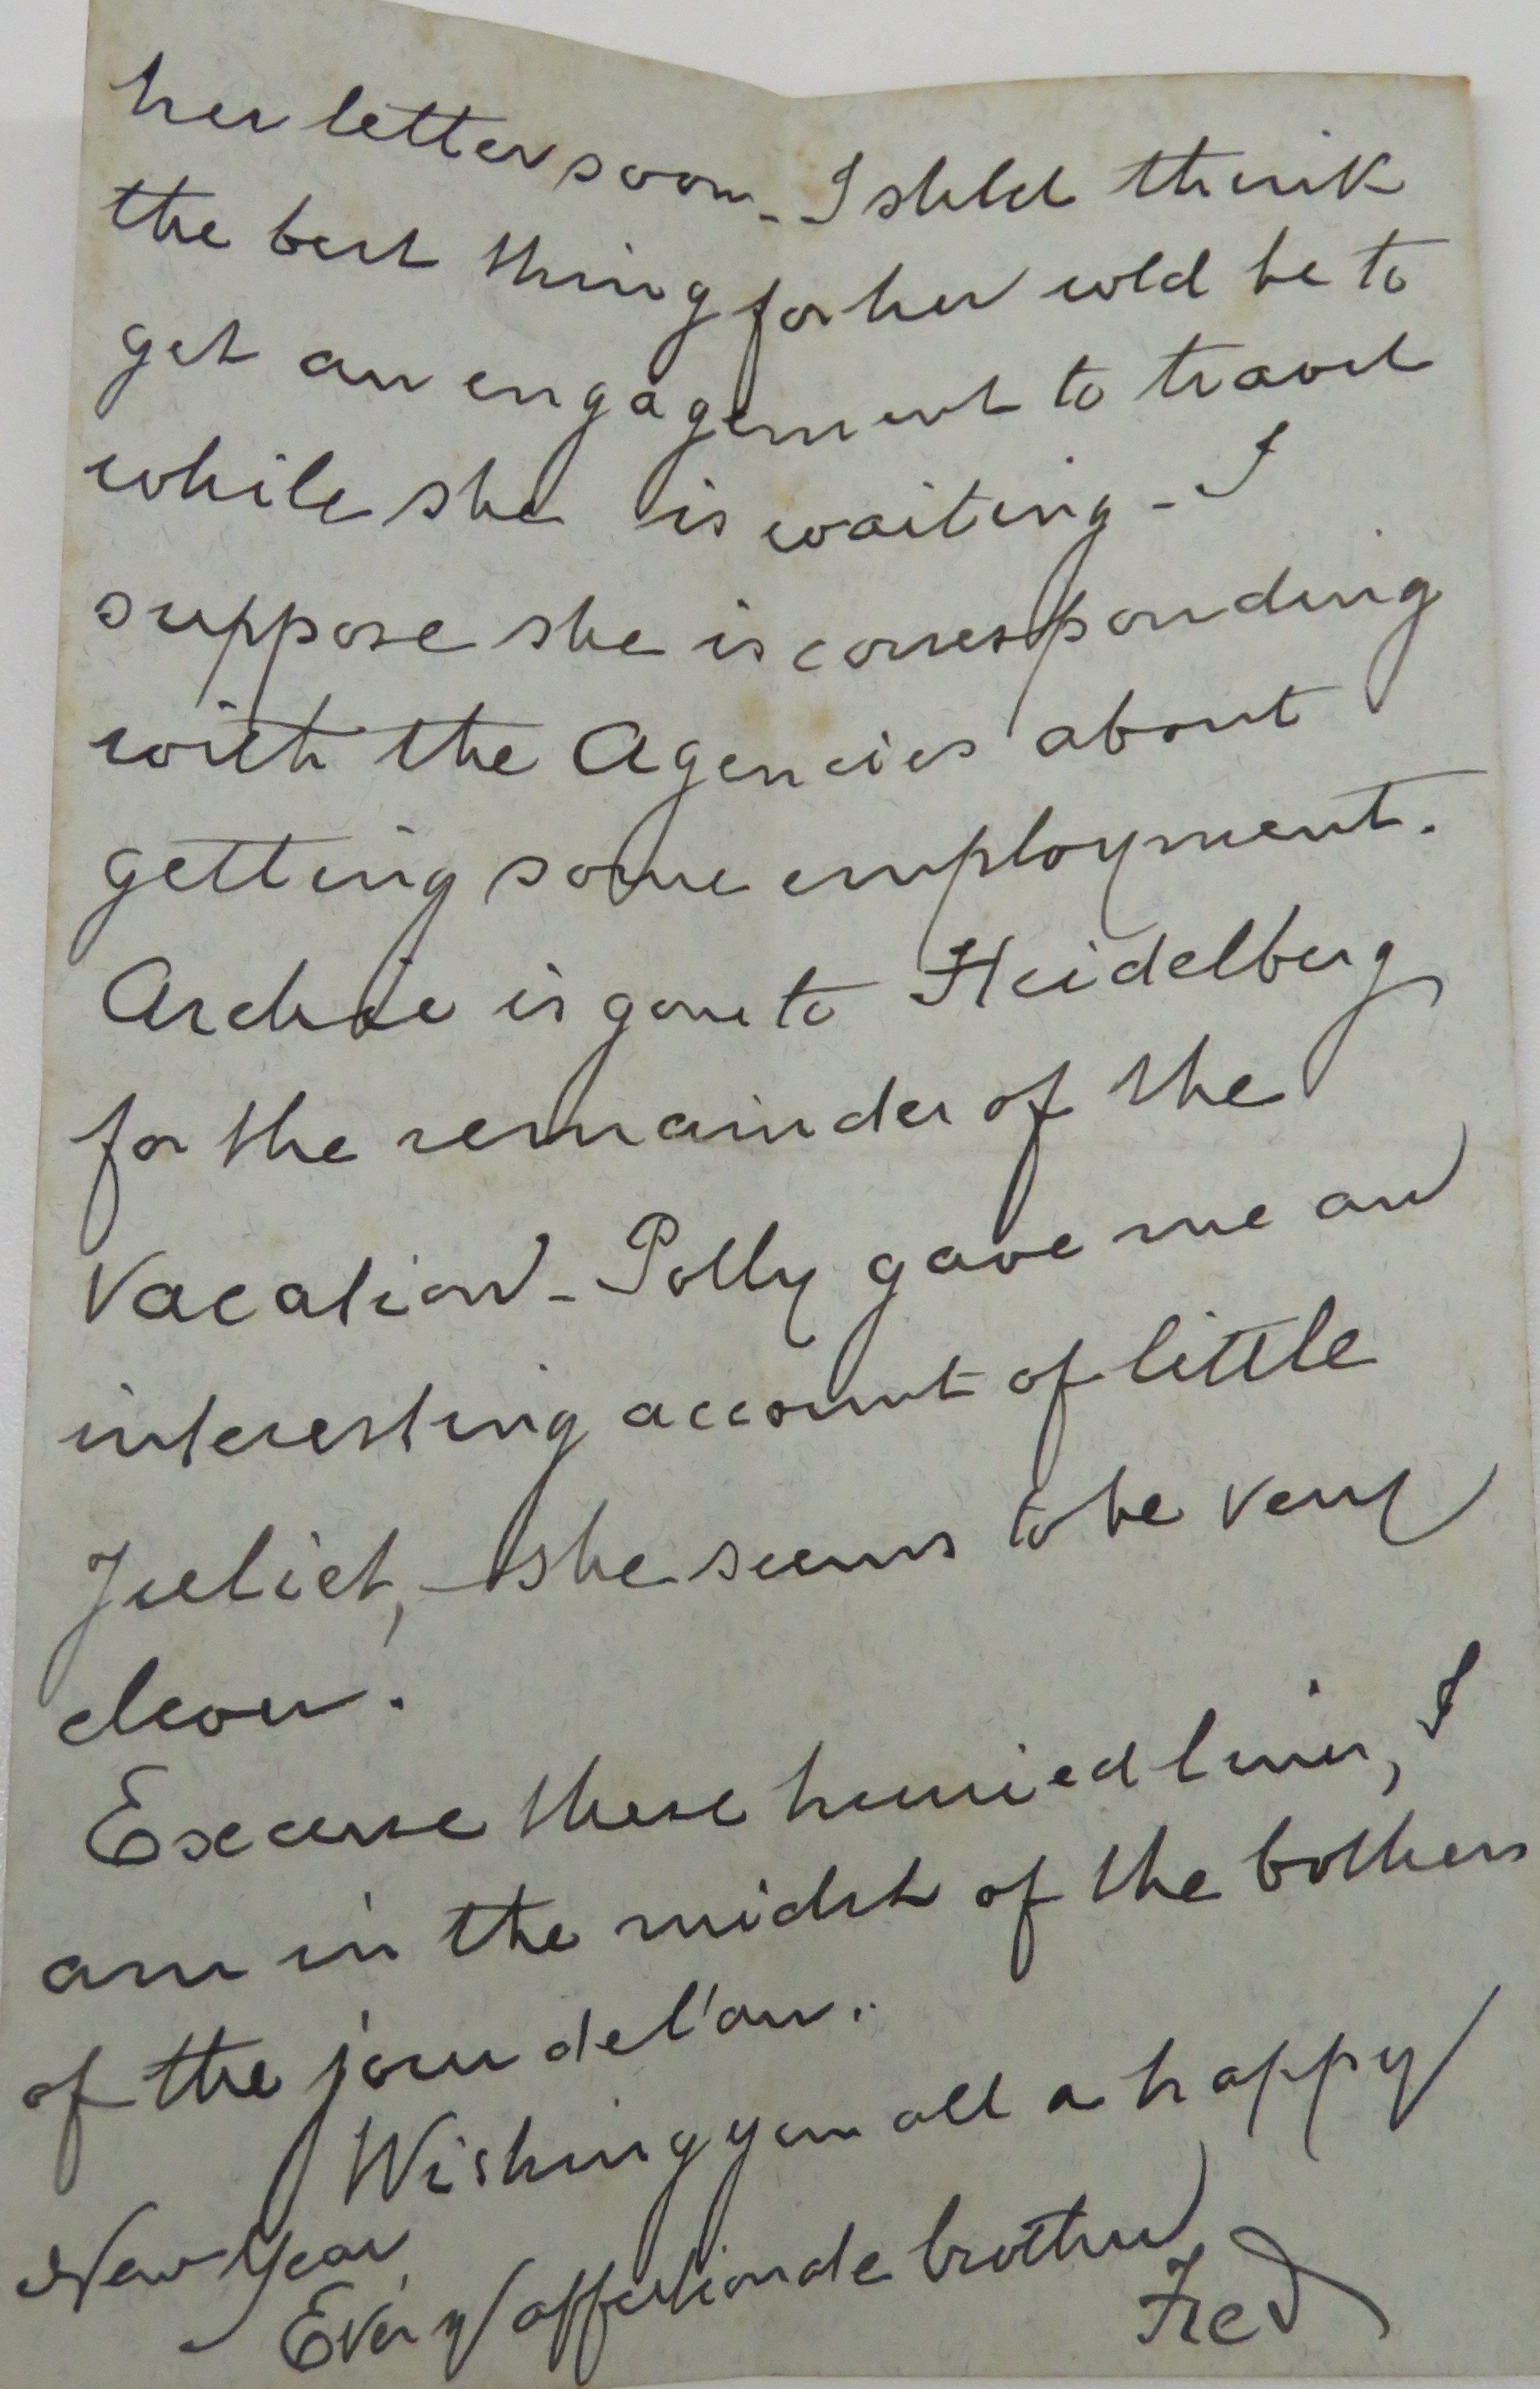 her letter soon - I shld think
the best thing for her wld be to
get an engagement to travel
while she is waiting - I
suppose she is corresponding
with the Agencies about
getting some employment.
Archie is gone to Heidelberg
for the remainder of the
Vacation - Polly gave me an
interesting account of little
Juliet, - she seems to be very
clever.
Excuse these hurried lines, I
am in the midst of the bothers
of the jour de l'an.
Wishing you all a happy
New Year
Ever yr affectionate brother
Fred